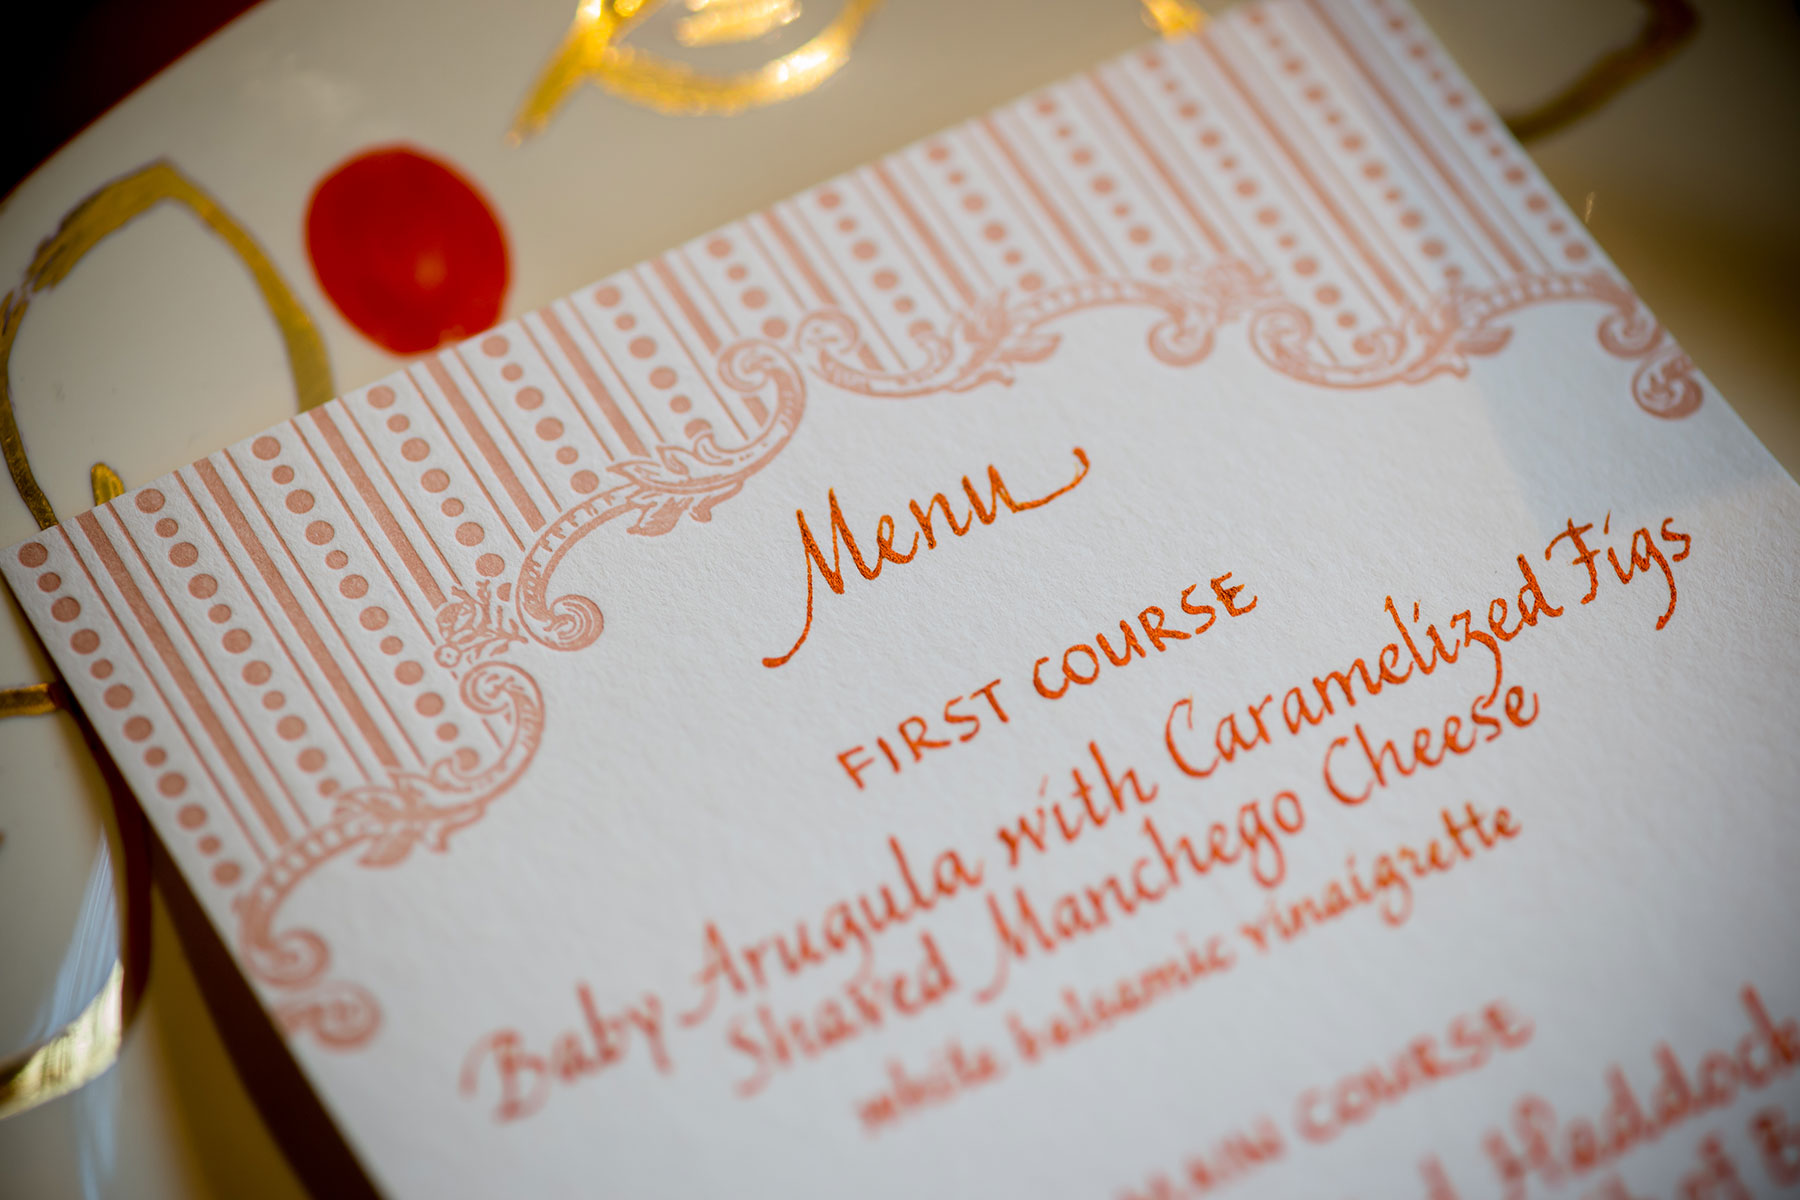 Menu
FIRST COURSE
Baby Arugula with Caramelized Figs
Shaved Manchego Cheese
white balsamic vinaigrette
MAIN COURSE
Haddock
of B